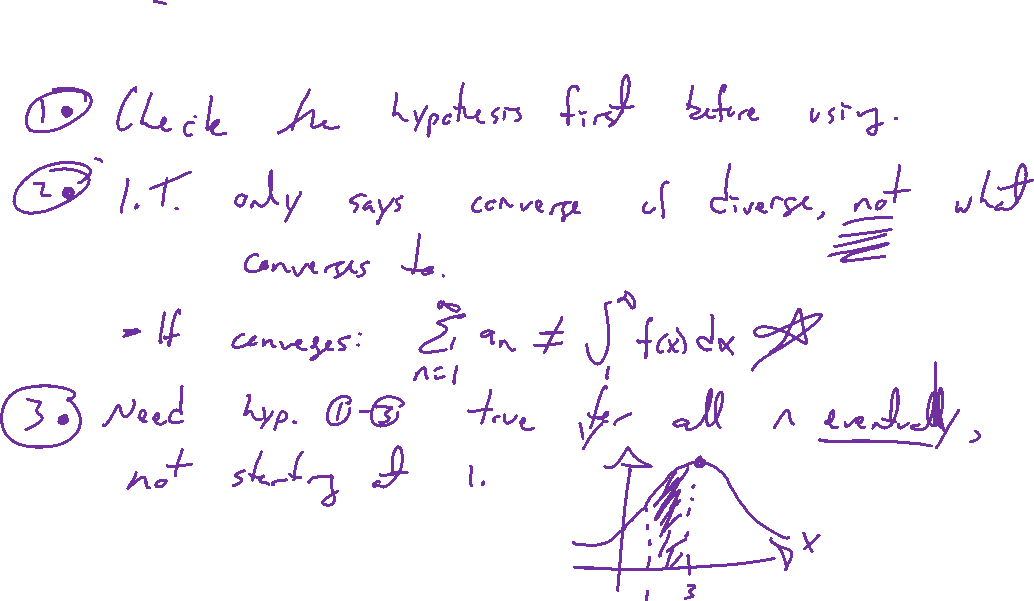 1. Check the hypothesis first before using.
2. I.T. only says converge or diverge, not what
converges to.
- If converges: \sum_{n=1}^{\infty} a_n ≠ \int_{1}^{\infty} f(x) dx ☆
3. Need hyp. ①-③ true for all n eventually,
not starting at 1.
x
1 3